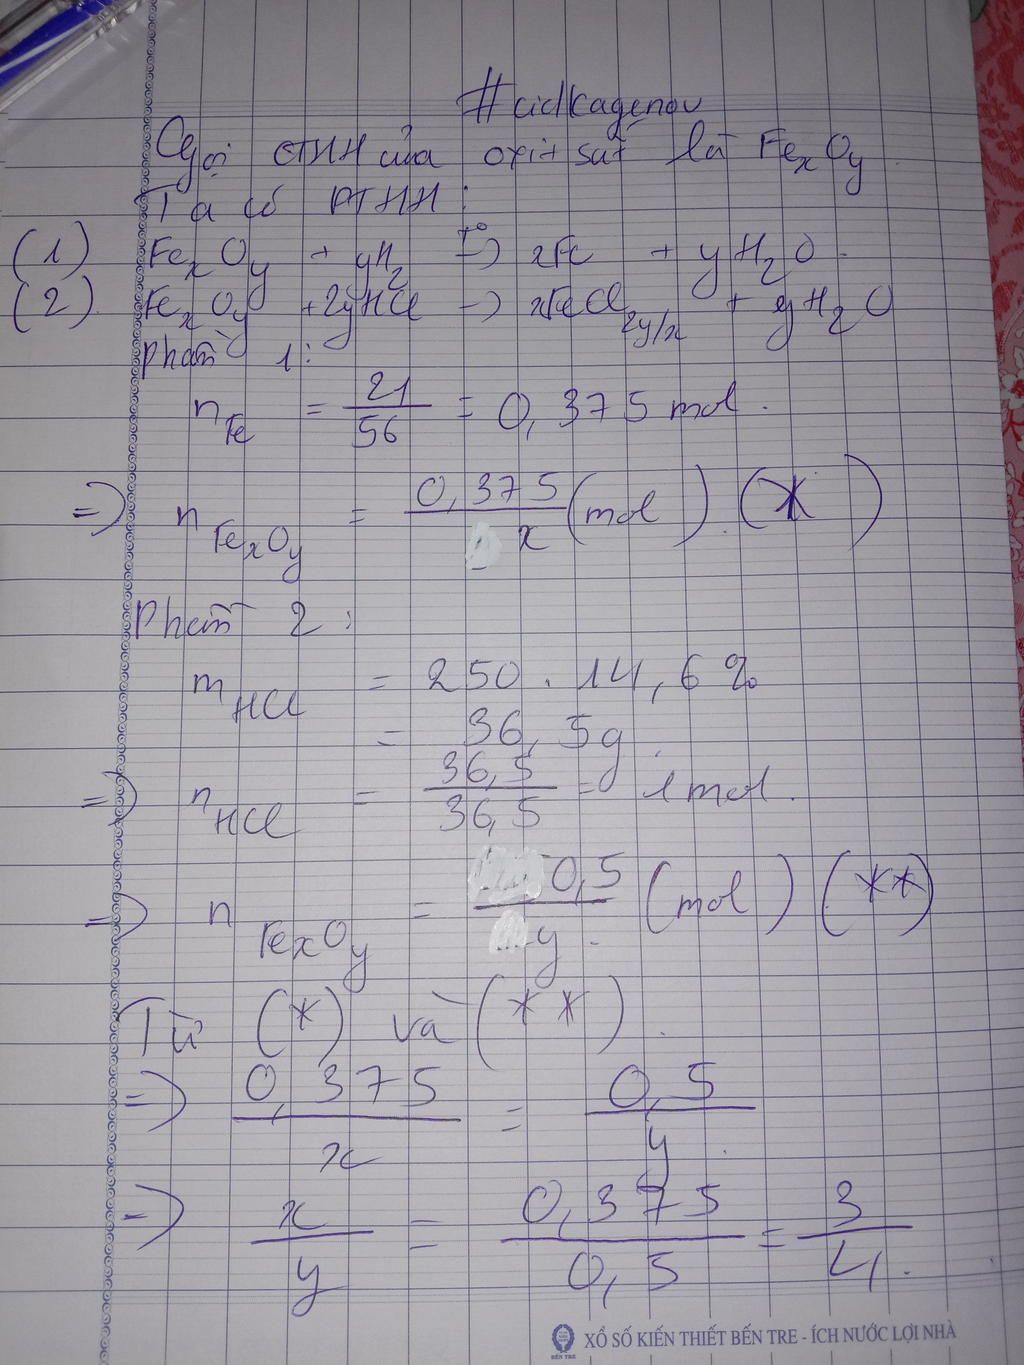 #cidkagenou
Gọi CTHH của oxit sắt là FexOy
Ta có PTHH:
(1) FexOy + yH2 t°→ xFe + yH2O.
(2) FexOy + 2yHCl → xFeCl2y/x + yH2O
Phần 1:
nFe = 21/56 = 0,375 mol.
=> nFexOy = 0,375/x (mol). (*)
Phần 2:
mHCl = 250 . 14,6%
= 36,5g.
=> nHCl = 36,5/36,5 = 1 mol.
=> nFexOy = 0,5/y (mol) (**)
Từ (*) và (**).
=> 0,375/x = 0,5/y.
=> x/y = 0,375/0,5 = 3/4.
XỔ SỐ KIẾN THIẾT BẾN TRE - ÍCH NƯỚC LỢI NHÀ
BẾN TRE